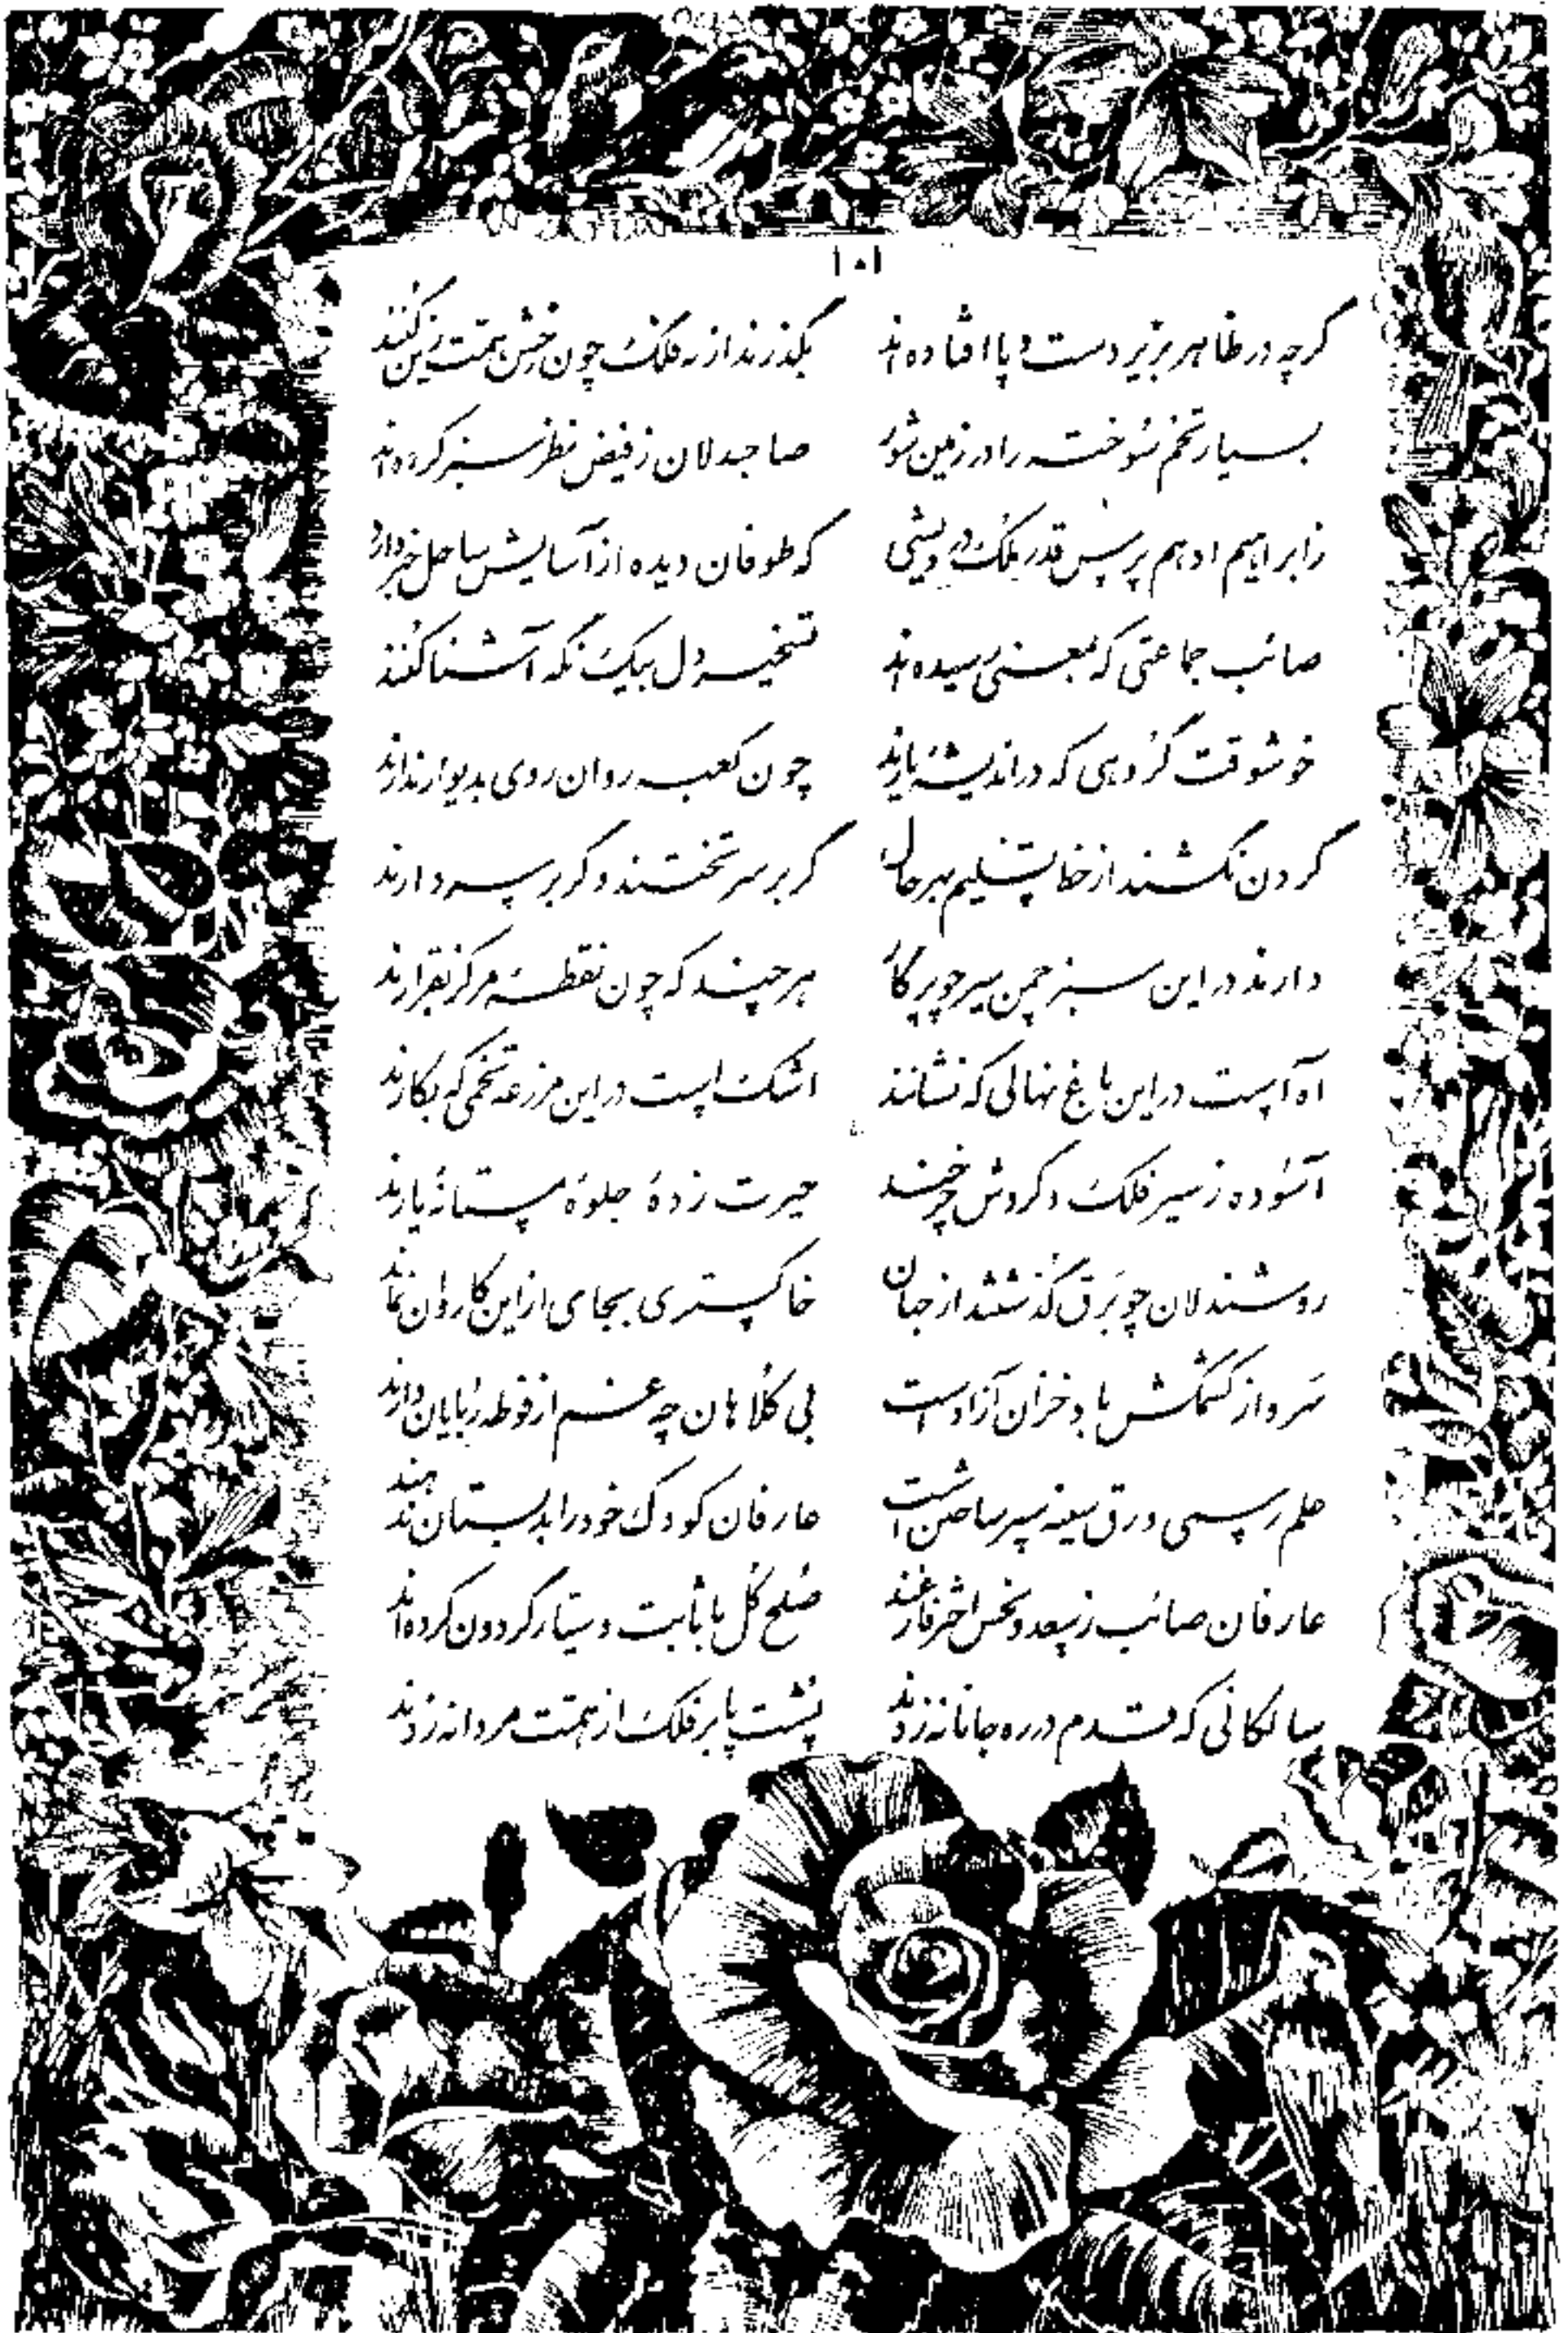 ۱۰۱
گرچه در ظاهر بزیر دست و پا افتاده‌اند بگذرند از نه فلک چون رخش همت زین کنند
بسیار تخم سوخته را در زمین شور صاحبدلان ز فیض نظر سبز کرده‌اند
ز ابراهیم ادهم پرس قدر ملک درویشی که طوفان دیده از آسایش ساحل خبر دارد
صائب جماعتی که بمعنی رسیده‌اند تسخیر دل بیک نگه آشنا کنند
خوشوقت گروهی که در اندیشهٔ یارند چون کعبه روان روی بدیوار ندارند
گردن نکشند از خط تسلیم بهر حال گر بر سر تختند و گر بر سر دارند
دارند در این سبز چمن سیر چو پرگار هر چند که چون نقطهٔ مرکز بقرارند
آه است در این باغ نهالی که نشانند اشک است در این مزرعه تخمی که بکارند
آسوده ز سیر فلک و گردش چرخند حیرت زدهٔ جلوهٔ مستانهٔ یارند
روشندلان چو برق گذشتند از جهان خاکستری بجای از این کاروان نماند
سرو از کشمکش باد خزان آزاد است بی کلاهان چه غم از فوطه ربایان دارند
علم رسمی ورق سینه سیه ساختن است عارفان کودک خود را بدبستان ندهند
عارفان صائب ز سعد و نحس اختر فارغند صلح کل با ثابت و سیار گردون کرده‌اند
سالکانی که قدم در ره جانانه زدند پشت پا بر فلک از همت مردانه زدند